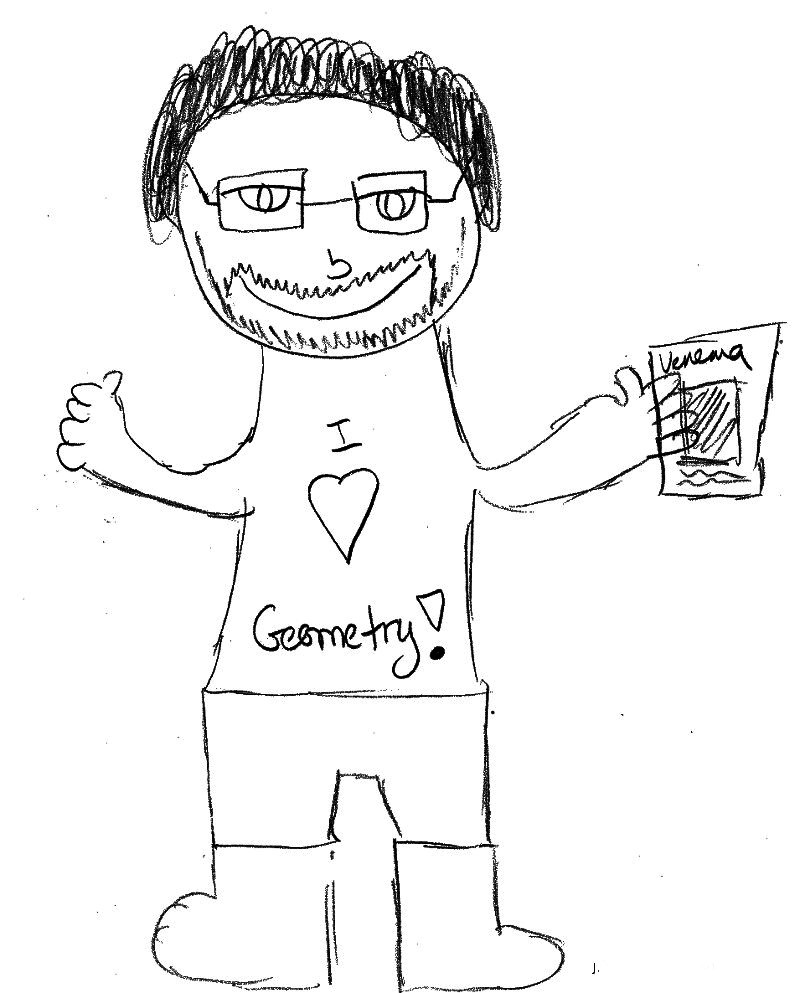 Venema
I
Geometry!